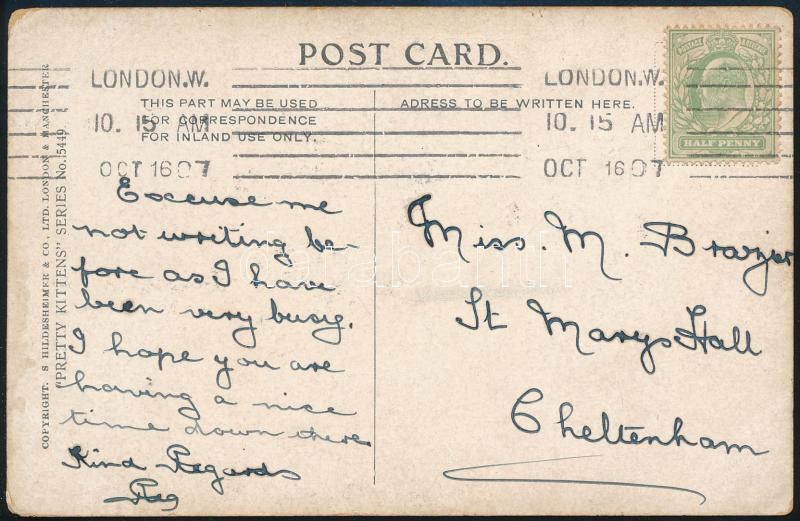 POST CARD.
LONDON.W.
10. 15 AM
OCT 16 07
LONDON.W.
10. 15 AM
OCT 16 07
HALF PENNY
THIS PART MAY BE USED
FOR CORRESPONDENCE
FOR INLAND USE ONLY.
ADRESS TO BE WRITTEN HERE.
COPYRIGHT: S HILDESHEIMER & CO., LTD. LONDON & MANCHESTER
"PRETTY KITTENS" SERIES No. 15449
Excuse me
not writing be-
fore as I have
been very busy.
I hope you are
having a nice
time down there
Kind Regards
Reg
Miss. M. Brazier
St Marys Hall
Cheltenham
databanth